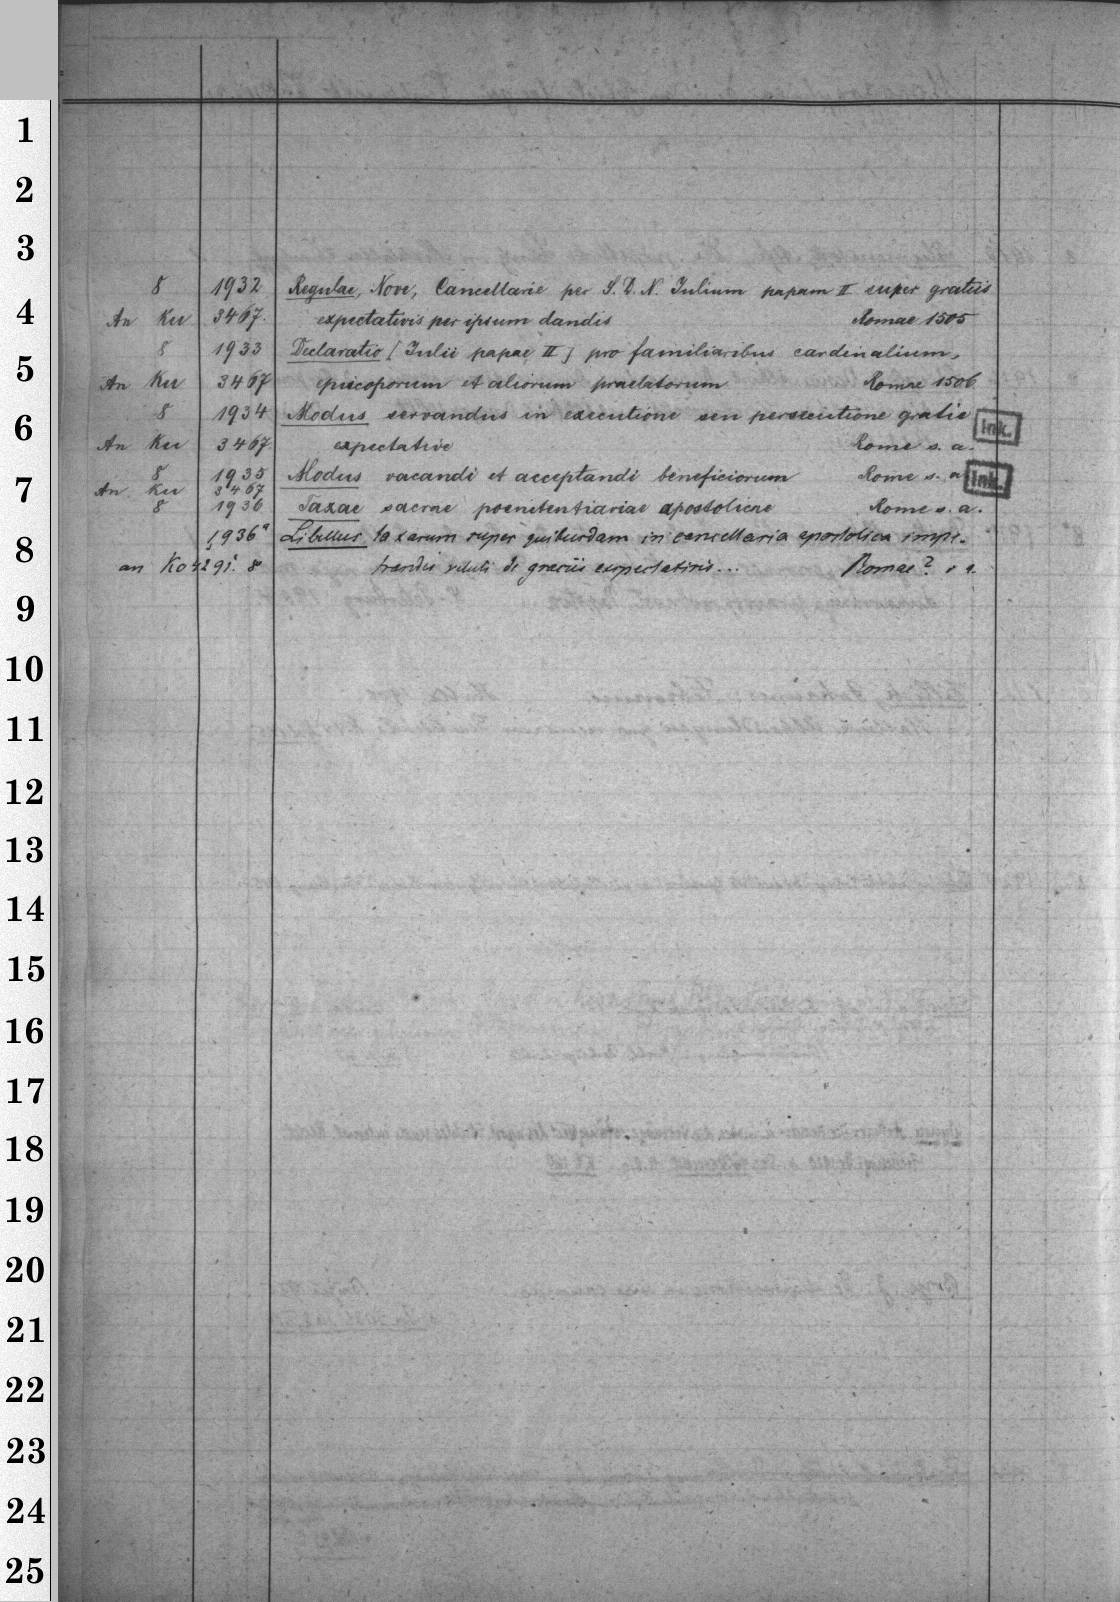 1
2
3
8 1932 Regulae, Nove, Cancellarie per S. D. N. Iulium papam II super gratiis
4
An Ku 3467. expectativis per ipsum dandis Romae 1505
8 1933 Declaratio [Iulii papae II] pro familiaribus cardinalium,
5
An Ku 3467 episcoporum et aliorum praelatorum Romae 1506
8 1934 Modus servandus in executione seu persecutione gratie
6
Ink.
An Ku 3467. expectative Rome s. a.
8 1935 Modus vacandi et acceptandi beneficiorum Rome s. a.
Ink.
7
An Ku 3467
8 1936 Taxae sacrae poenitentiariae apostolicae Rome s. a.
1936a Libellus taxarum super quibusdam in cancellaria apostolica impe-
8
an Ko 4291. 8 trandis de expectativis... Romae?
9
10
11
12
13
14
15
16
17
18
19
20
21
22
23
24
25